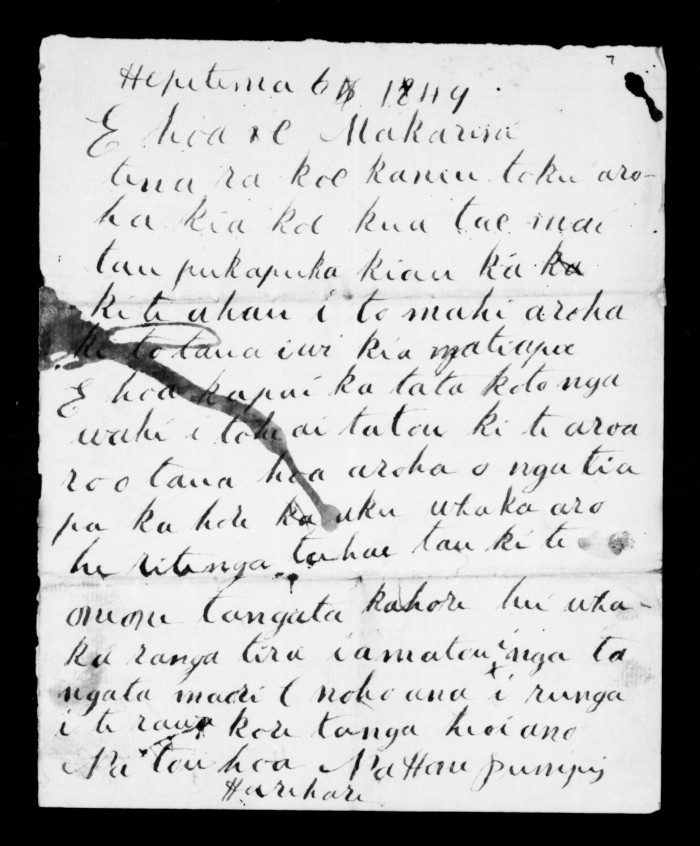 Hepetema 6 1849
E hoa e Makarini
tena ra koe kanui toku aro-
ha kia koe kua tae mai
tau pukapuka kiau ka ka
kite ahau i to mahi aroha
ki to taua iwi kia
E hoa kapai ka tata koto nga
wahi i tohe ai tatou ki te aroa
ro o taua hoa aroha o nga tia
pa ka hore ka uku whaka aro
he ritenga tahae tau ki te
onone tangata kahore hei wha-
ka ranga tira i a matou nga ta
ngata maori e noho ana i runga
i te rawa kore tanga heoi ano
Na tou hoa Na Hone
Harehare